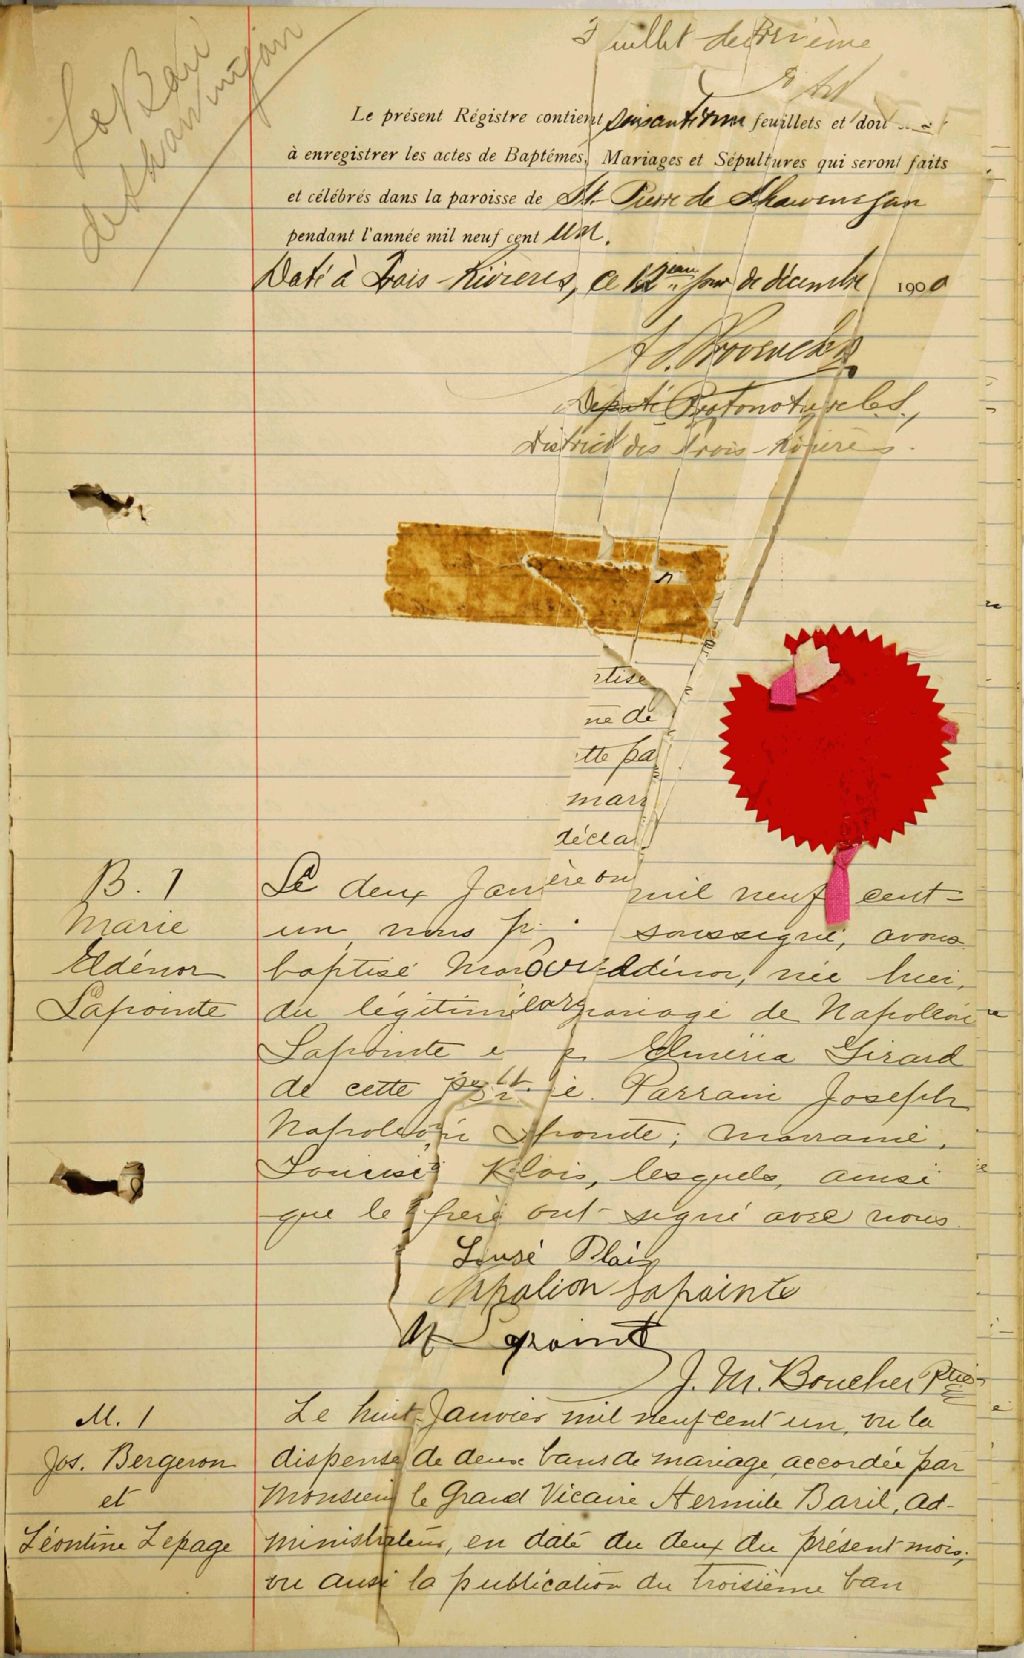 Juillet deuxième
Le présent Régistre contient soixante feuillets et doit
à enregistrer les actes de Baptêmes, Mariages et Sépultures qui seront faits
et célébrés dans la paroisse de St. Pierre de Shawenegan
pendant l'année mil neuf cent un.
Daté à Trois-Rivières, ce 12 ième jour de décembre 1900
Député Protonotaire C.S.,
District des Trois-Rivières.
ne de
tte pa
mari
décla
B. 1
Marie
Eldénor
Lapointe
Le deux Jan mil neuf cent-
un, nous p soussigné, avons
baptisé Mar Eldénor, née hier,
du légitim mariage de Napoléon
Lapointe e Elméria Girard
de cette p Parrain Joseph
Napoléon pointe; marraine,
lesquels, ainsi
que le père ont signé avec nous.
Napolion Lapointe
J. M. Boucher Ptre
M. 1
Jos. Bergeron
et
Léontine Lepage
Le huit Janvier mil neuf cent un, vu la
dispense de deux bans de mariage, accordée par
Monsieur le Grand Vicaire Hermile Baril, ad-
ministrateur, en date du deux du présent mois;
vu aussi la publication du troisième ban